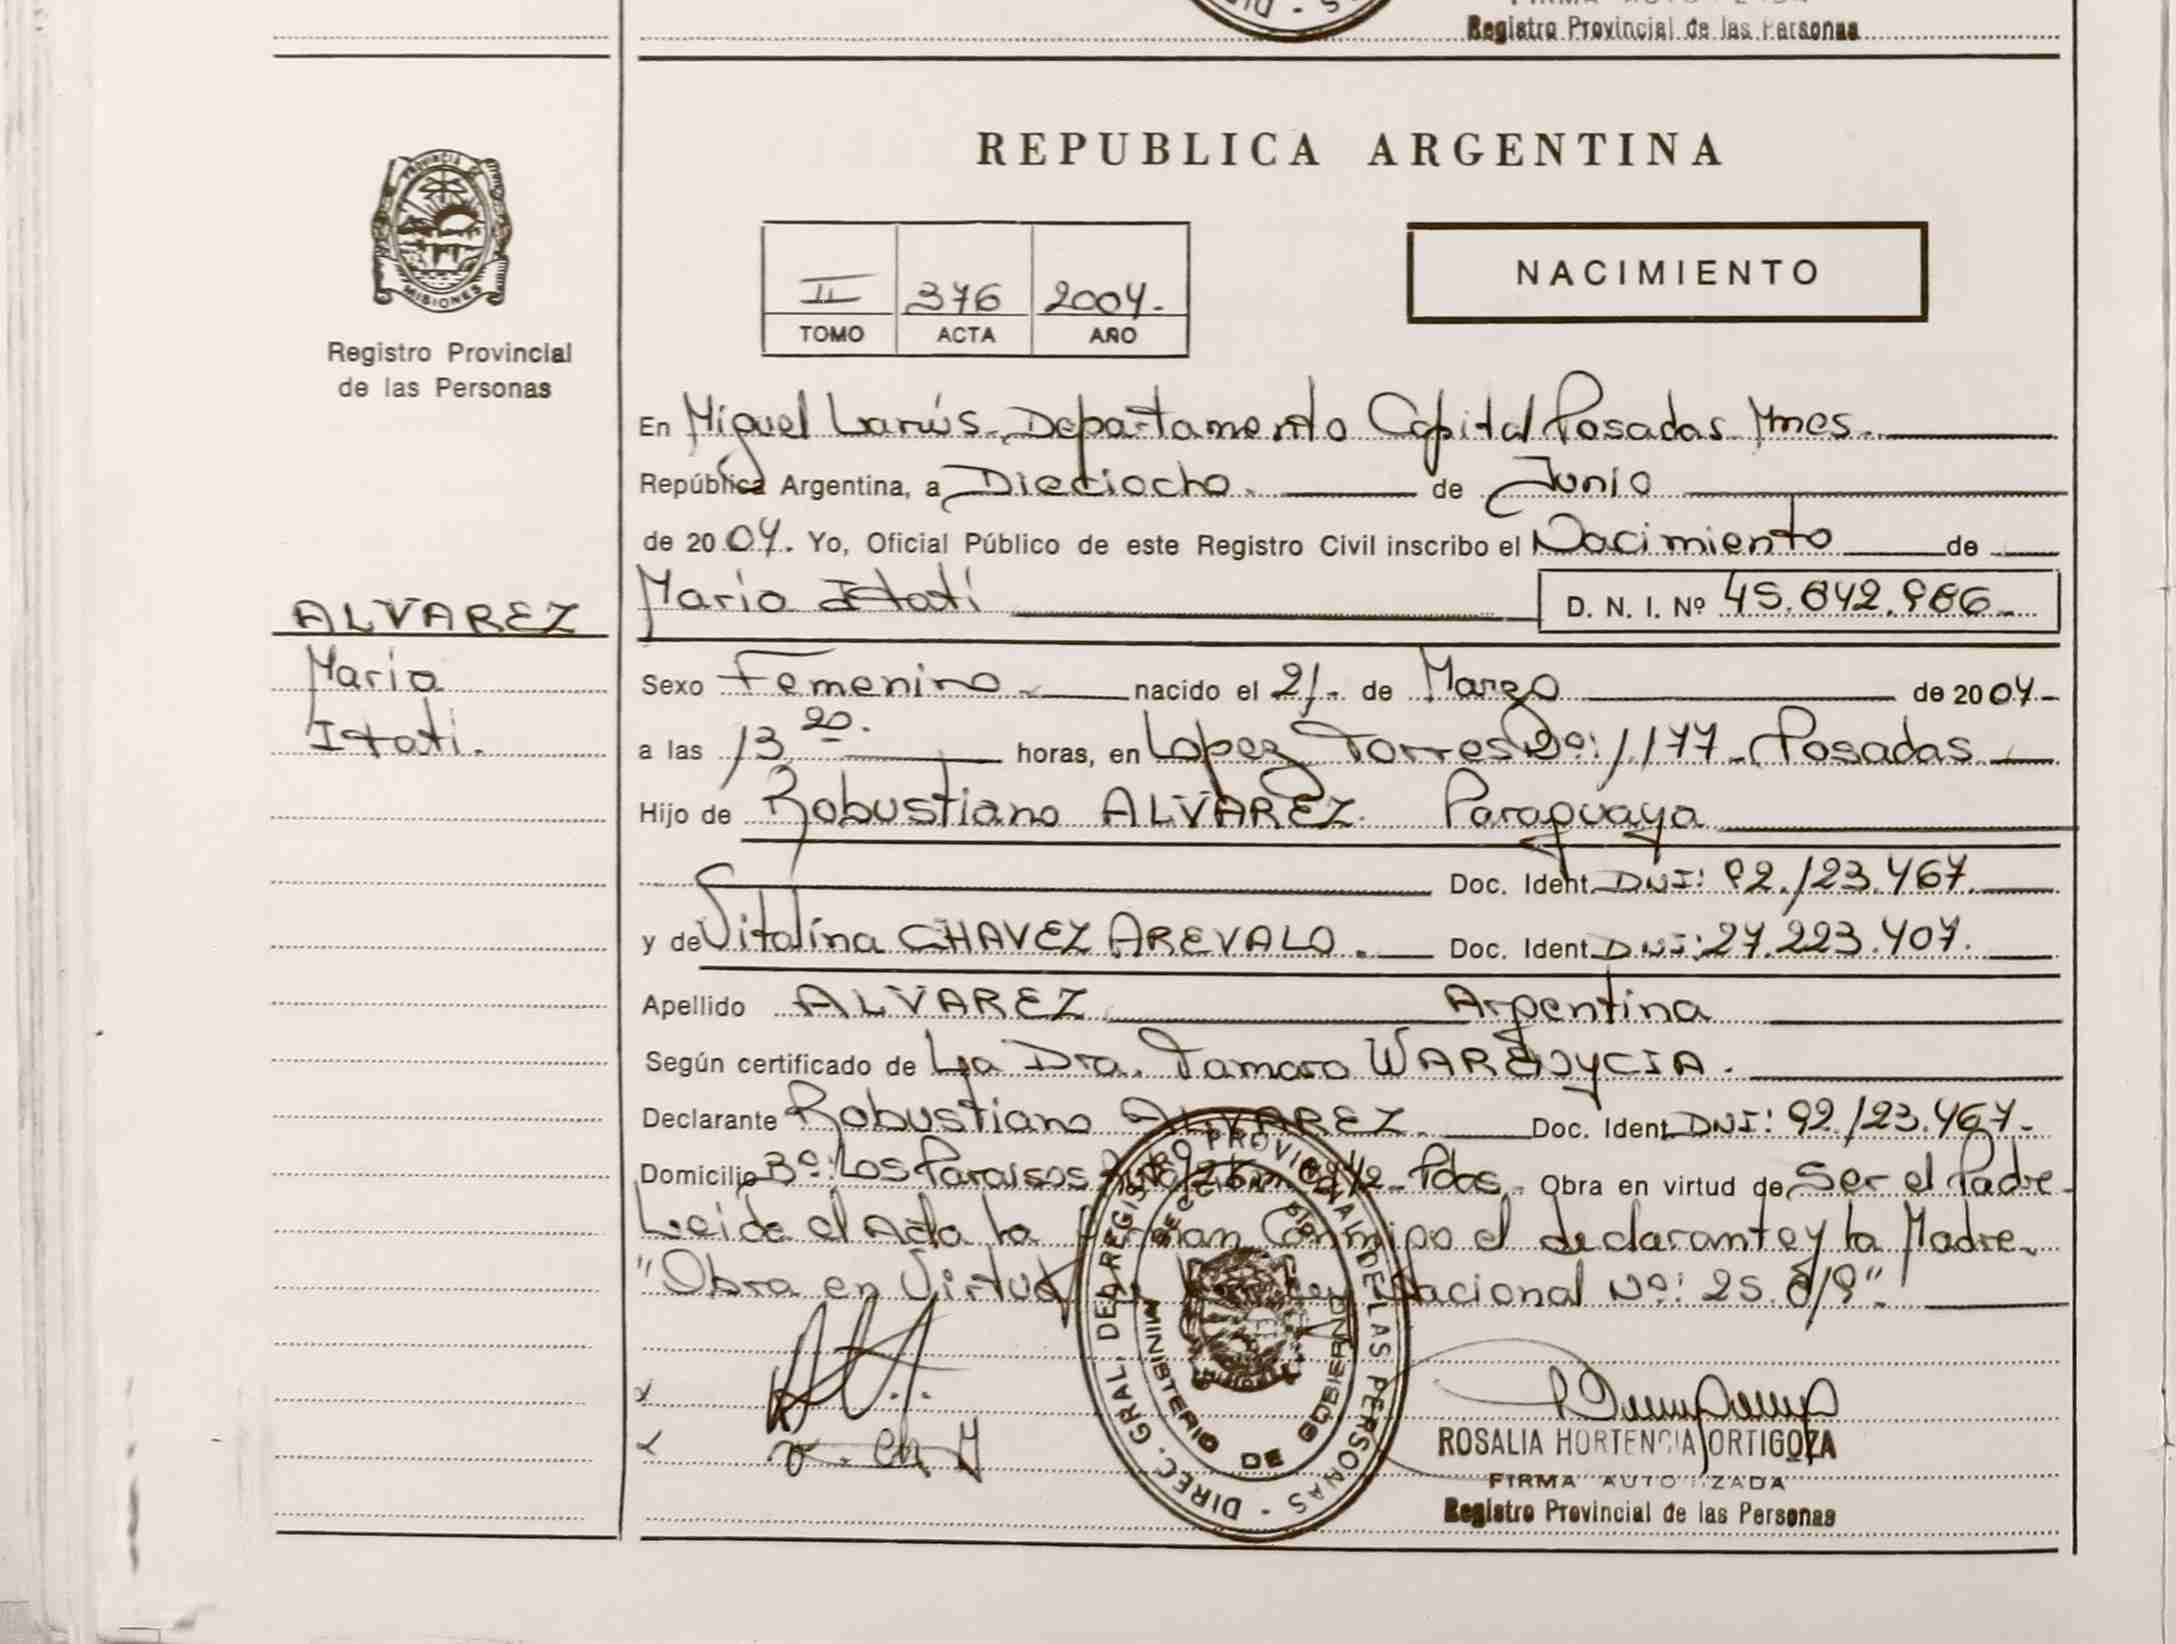 Registro Provincial de las Personas
REPUBLICA ARGENTINA
PROVINCIA DE
MISIONES
Registro Provincial
de las Personas
II 376 2004.
TOMO ACTA AÑO
NACIMIENTO
En Miguel Lanús. Departamento Capital Posadas Mnes.
República Argentina, a Dieciocho. de Junio
de 2004. Yo, Oficial Público de este Registro Civil inscribo el Nacimiento de
María Itatí D. N. I. Nº 45.842.986
ALVAREZ
María
Itatí.
Sexo Femenino nacido el 21. de Marzo de 2004
a las 13 20. horas, en Lopez Torres Nº: 1177 Posadas
Hijo de Robustiano ALVAREZ. Paraguaya
Doc. Ident. DNI: 92.123.467.
y de Vitalina CHAVEZ AREVALO. Doc. Ident. DNI: 27.223.407.
Apellido ALVAREZ Argentina
Según certificado de La Dra. Tamara
Declarante Robustiano ALVAREZ. Doc. Ident. DNI: 92.123.467.
Domicilio Bº: Los Paraisos Pdas. Obra en virtud de Ser el Padre
Leida el Acta la Firman Conmigo el declarante y la Madre.
"Obra en Virtud de la Ley Nacional Nº: 25.819".
DIREC. GRAL. DEL REGISTRO PROVINCIAL DE LAS PERSONAS
MINISTERIO DE GOBIERNO
ROSALIA HORTENCIA ORTIGOZA
FIRMA AUTORIZADA
Registro Provincial de las Personas